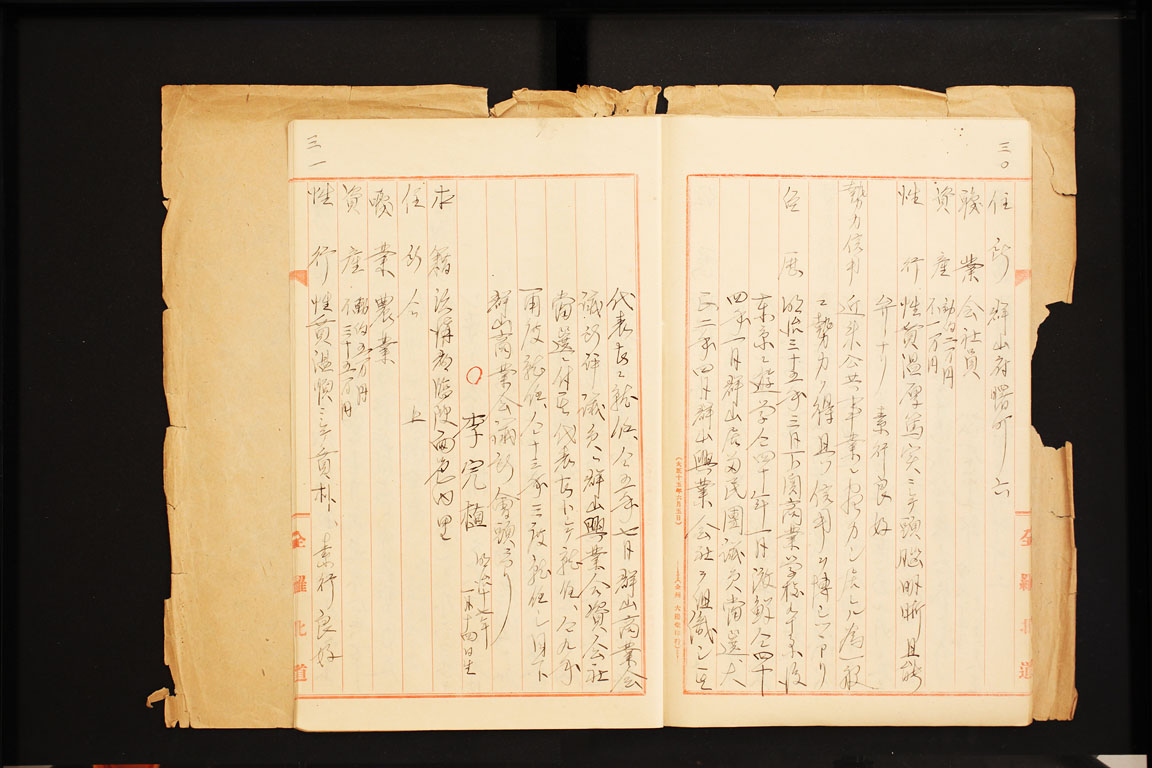 三〇
住所 群山府曙町 六
職業 会社員
資産 動約二万円
一万円
性行 性質温厚篤実ニシテ頭脳明晰且能
弁ナリ 素行良好
勢力信用 近来公共事業ニ尽力シ居レル為一般
ニ勢力ヲ得且ツ信用ヲ博シツヽアリ
経歴 明治三十五年三月下関商業学校卒業後
東京ニ遊学仝四十年一月渡鮮仝四十
四年一月群山居留民團議員當選大
正二年四月群山興業会社ヲ組織シ其
(大正十五年六月五日)
全羅北道
三一
代表者ニ就任、仝五年七月群山商業会
議所評議員ニ群山興業合資会社
當選ニ付其代表者トシテ就任、仝九年
再度就任仝十三年三度就任シ目下
群山商業会議所會頭タリ
〇 李完植 明治十七年
一月十四日生
本籍 沃溝郡臨陂面邑内里
住所 仝 上
職業 農業
資産 動約五万円
三十五万円
性行 性質温順ニシテ質朴、素行良好
全羅北道